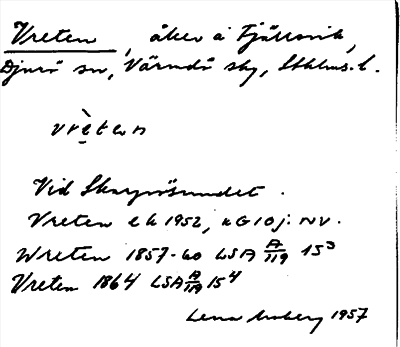 Vreten, åker å Fjällsvik,
Djurö sn, Värmdö skg, Sthlms l.
vrètən
Vid Skarprösundet.
Vreten ek 1952, kG10j: NV.
Wreten 1857-60 LSA A/119 15³
Vreten 1864 LSA A/119 15⁴
Lena Moberg 1957